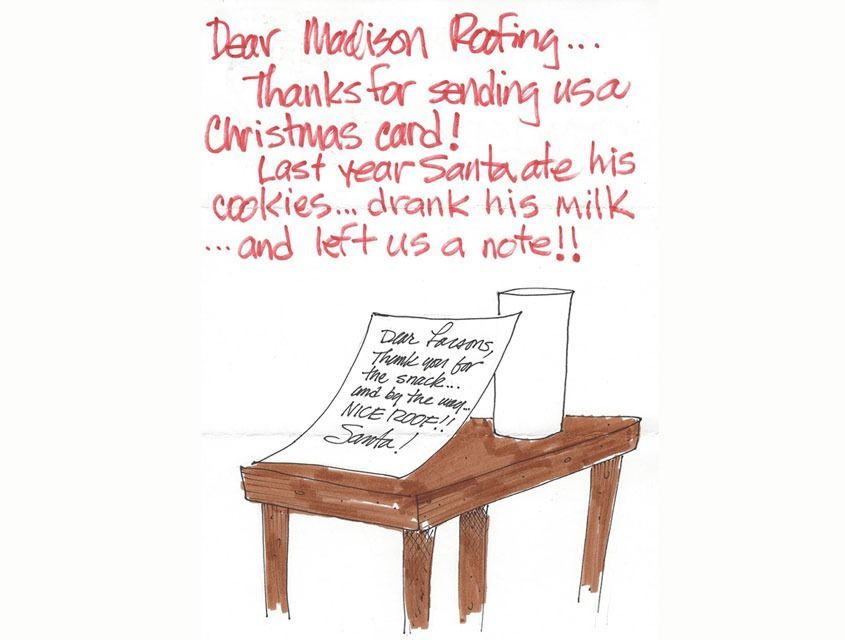 Dear Madison Roofing...
Thanks for sending us a
Christmas card!
Last year Santa ate his
cookies... drank his milk
...and left us a note!!
Dear Larsons,
Thank you for
the snack...
and by the way...
NICE ROOF!!
Santa!